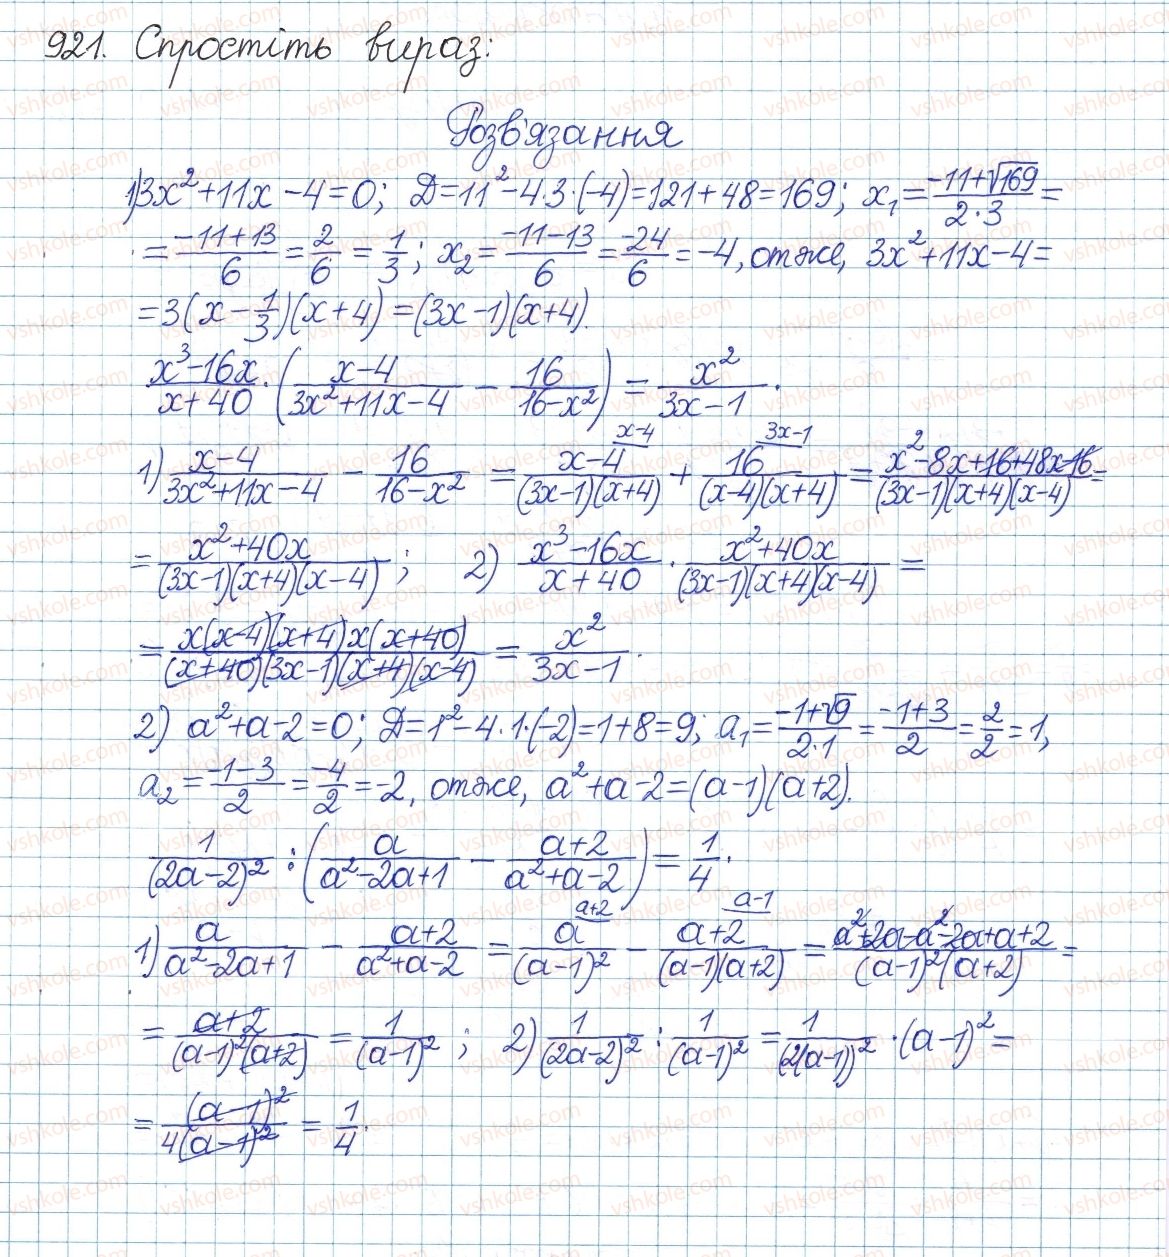 921. Спростіть вираз:
Розв'язання
1) 3x² + 11x - 4 = 0; Д = 11² - 4·3·(-4) = 121 + 48 = 169; x₁ = (-11+√169)/(2·3) =
= (-11+13)/6 = 2/6 = 1/3; x₂ = (-11-13)/6 = -24/6 = -4, отже, 3x² + 11x - 4 =
= 3(x - 1/3)(x + 4) = (3x - 1)(x + 4).
(x³-16x)/(x+40) · ((x-4)/(3x²+11x-4) - 16/(16-x²)) = x²/(3x-1).
1) (x-4)/(3x²+11x-4) - 16/(16-x²) = (x-4)/((3x-1)(x+4)) ^(x-4) + 16/((x-4)(x+4)) ^(3x-1) = (x²-8x+16+48x-16)/((3x-1)(x+4)(x-4)) =
= (x²+40x)/((3x-1)(x+4)(x-4)); 2) (x³-16x)/(x+40) · (x²+40x)/((3x-1)(x+4)(x-4)) =
= (x(x-4)(x+4)x(x+40))/((x+40)(3x-1)(x+4)(x-4)) = x²/(3x-1).
2) a² + a - 2 = 0; Д = 1² - 4·1·(-2) = 1 + 8 = 9; a₁ = (-1+√9)/(2·1) = (-1+3)/2 = 2/2 = 1,
a₂ = (-1-3)/2 = -4/2 = -2, отже, a² + a - 2 = (a-1)(a+2).
1/(2a-2)² : (a/(a²-2a+1) - (a+2)/(a²+a-2)) = 1/4.
1) a/(a²-2a+1) - (a+2)/(a²+a-2) = a/(a-1)² ^(a+2) - (a+2)/((a-1)(a+2)) ^(a-1) = (a²+2a-a²-2a+a+2)/((a-1)²(a+2)) =
= (a+2)/((a-1)²(a+2)) = 1/(a-1)²; 2) 1/(2a-2)² : 1/(a-1)² = 1/(2(a-1))² · (a-1)² =
= (a-1)²/(4(a-1)²) = 1/4.
vshkole.com